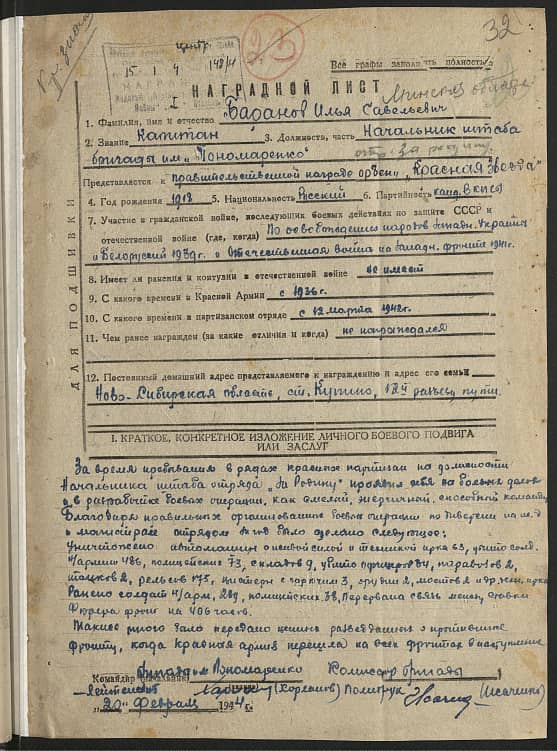 32
23
центр.
15 I 4 148/н
Все графы заполнять полностью
НАГРАДНОЙ ЛИСТ
1. Фамилия, имя и отчество Баранов Илья Савельевич
2. Звание Капитан 3. Должность, часть Начальник штаба
бригады им. "Пономаренко"
Представляется к правительственной награде орден "Красная Звезда"
4. Год рождения 1918 5. Национальность Русский 6. Партийность канд. ВКП(б)
7. Участие в гражданской войне, последующих боевых действиях по защите СССР и
отечественной войне (где, когда) По освобождению народов Западн. Украины
и Белоруссии 1939г. и Отечественная война на Западн. фронте 1941г.
8. Имеет ли ранения и контузии в отечественной войне не имеет
9. С какого времени в Красной Армии с 1936г.
10. С какого времени в партизанском отряде с 12 марта 1942г.
11. Чем ранее награжден (за какие отличия и когда) не награждался
12. Постоянный домашний адрес представляемого к награждению и адрес его семьи
Ново-Сибирская область, ст. Купино, разъезд
ДЛЯ ПОДШИВКИ
I. КРАТКОЕ, КОНКРЕТНОЕ ИЗЛОЖЕНИЕ ЛИЧНОГО БОЕВОГО ПОДВИГА
ИЛИ ЗАСЛУГ
За время пребывания в рядах красных партизан на должности
Начальника штаба отряда "За Родину" проявил себя на боевых делах
и в разработке боевых операции, как смелый, энергичный, способный командир
Благодаря правильных организованных боевых операции по диверсии на ж.д
и магистрале отрядом было сделано следующее:
Уничтожено автомашин с живой силой и техникой врага 63, убито солд.
486, полицейских 73, складов 9, убито офицеров 84, паровозов 2,
танков 2, рельсов 175, 3, орудий 2, мостов 2
Ранено солдат 289, полицейских 38, Перервана связь
фронт на 406 часов.
Также много было передано ценных разведданных о противнике
фронту, когда Красная армия перешла на всех фронтах в наступление
Командир (начальник) бригады им Пономаренко Комиссар бригады
лейтенант Политрук (Исаченко)
"20" Февраля 1944 г.